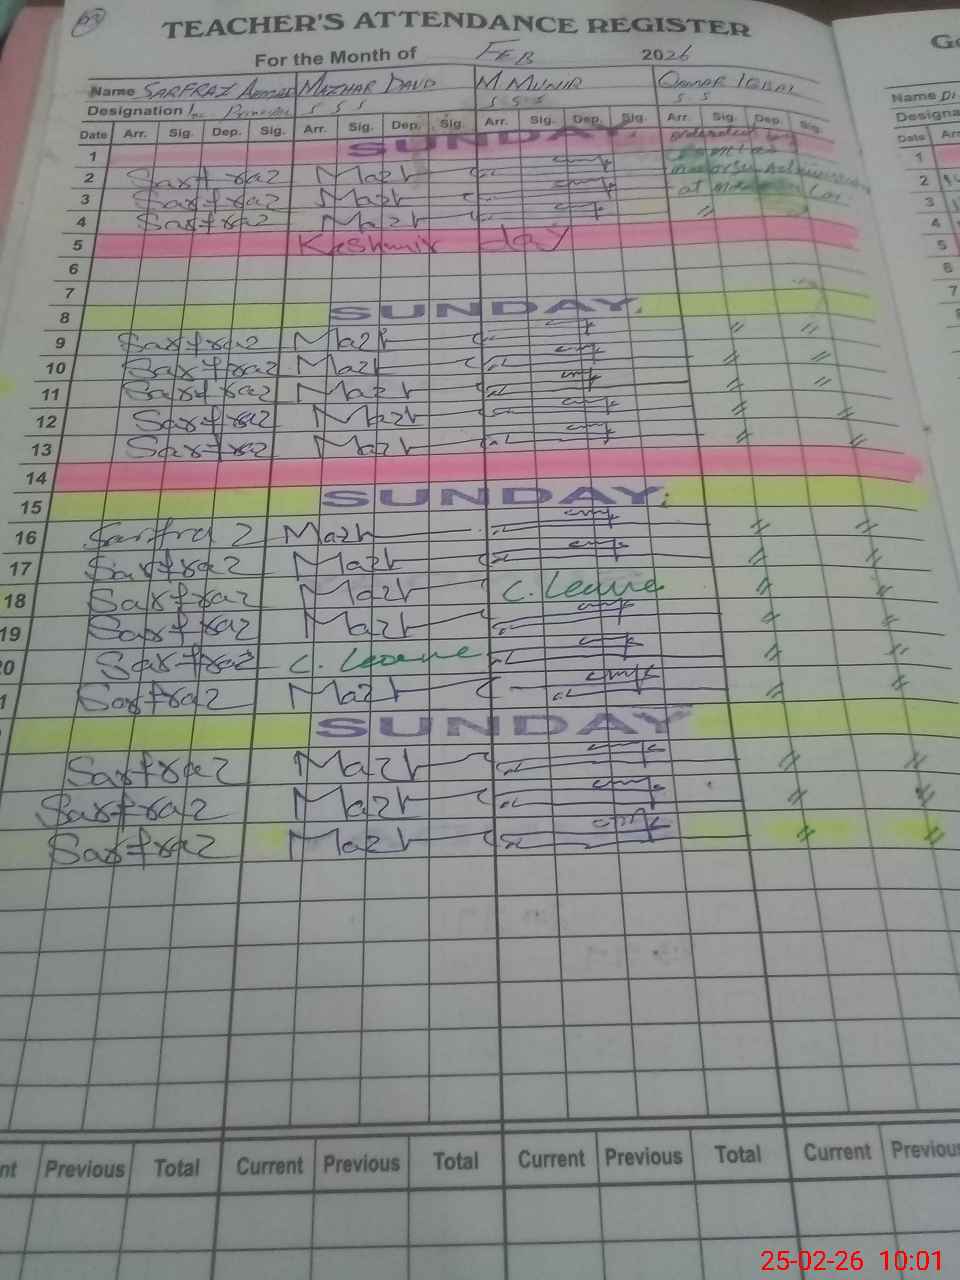 TEACHER'S ATTENDANCE REGISTER
For the Month of FEB 2026
Name SARFRAZ AHMAD MAZHAR DAUD M. MUNIR QAMAR IQBAL
Designation S S S S.S.S S.S
Date Arr. Sig. Dep. Sig. Arr. Sig. Dep. Sig. Arr. Sig. Dep. Sig. Arr. Sig. Dep. Sig.
1 SUNDAY
2 Sarfraz Mazh
3 Sarfraz Mazh at
4 Sarfraz Mazh 〃
5 Kashmir day
6
7
8 SUNDAY.
9 Sarfraz Mazh 〃 〃
10 Sarfraz Mazh 〃 〃
11 Sarfraz Mazh 〃 〃
12 Sarfraz Mazh 〃 〃
13 Sarfraz Mazh 〃 〃
14
15 SUNDAY;
16 Sarfraz Mazh 〃 〃
17 Sarfraz Mazh 〃 〃
18 Sarfraz Mazh C. Leave 〃 〃
19 Sarfraz Mazh 〃 〃
20 Sarfraz C. Leave 〃 〃
1 Sarfraz Mazh 〃 〃
SUNDAY
Sarfraz Mazh 〃 〃
Sarfraz Mazh 〃 〃
Sarfraz Mazh 〃 〃
nt Previous Total Current Previous Total Current Previous Total Current Previous
Name
Designa
Date Ar
1
2
3
4
5
6
7
25-02-26 10:01